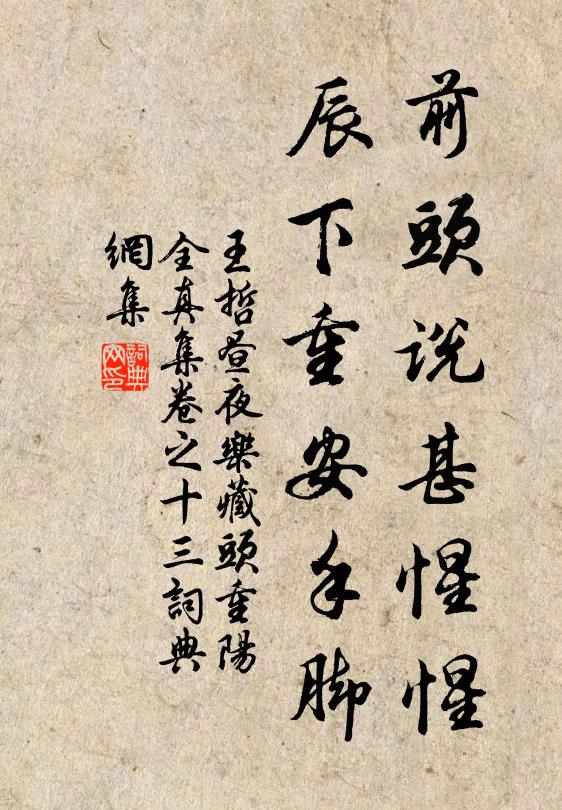 前頭説甚惺惺
辰下重安手脚
王哲晝夜樂藏頭重陽
全真集卷之十三詞典
網集
詞典網印